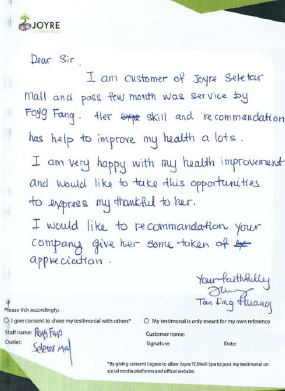 JOYRE
TCMEDI SPA
Dear Sir,
I am customer of Joyre Seletar
mall and pass few month was service by
Fong Fang. Her skill and recommendation
has help to improve my health a lots.
I am very happy with my health improvement
and would like to take this opportunities
to express my thankful to her.
I would like to recommandation your
company give her some token of
appreciation.
Your faithfully
Tan Ling Huang
Please tick accordingly:
O I give consent to share my testimonial with others* O My testimonial is only meant for my own reference
Staff name: Fong Fang Customer name:
Outlet: Seletar Mall Signature: Date:
*By giving consent I agree to allow Joyre TCMedi Spa to post my testimonial on
social media platforms and official website.